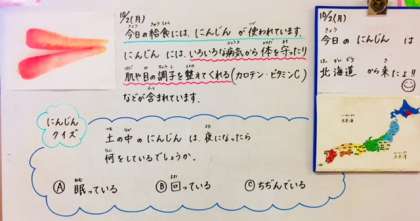 10/2(月)
今日の給食には、にんじんが使われています。
にんじんには、いろいろな病気から体を守ったり
肌や目の調子を整えてくれる(カロテン・ビタミンC)
などが含まれています。
にんじん
クイズ
土の中のにんじんは夜になったら
何をしているでしょうか。
Ⓐ 眠っている
Ⓑ 回っている
Ⓒ ちぢんでいる
10/2(月)
今日のにんじんは
北海道から来たよ!!